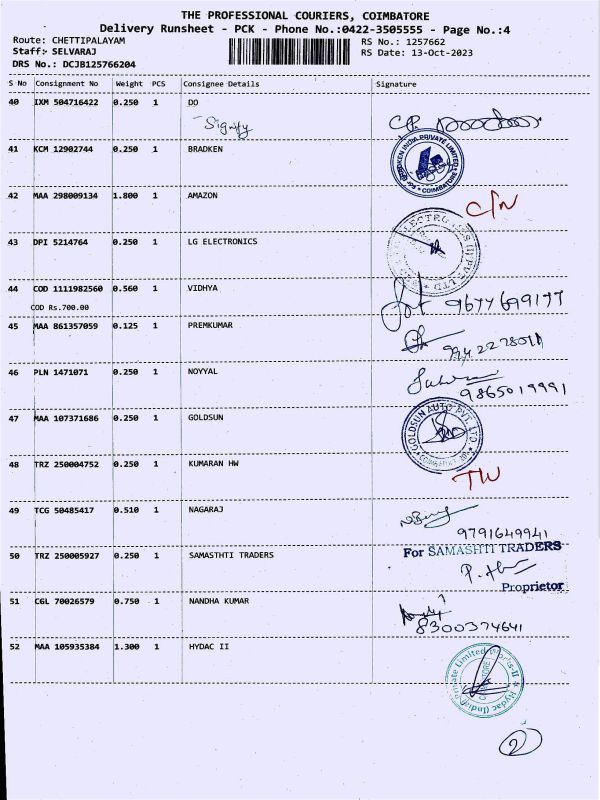 THE PROFESSIONAL COURIERS, COIMBATORE
Delivery Runsheet - PCK - Phone No.:0422-3505555 - Page No.:4
Route: CHETTIPALAYAM RS No.: 1257662
Staff: SELVARAJ RS Date: 13-Oct-2023
DRS No.: DCJB125766204
S No Consignment No Weight PCS Consignee Details Signature
40 IXM 504716422 0.250 1 DO
Signify
41 KCM 12902744 0.250 1 BRADKEN
BRADKEN INDIA PRIVATE LIMITED COIMBATORE
42 MAA 298009134 1.800 1 AMAZON C/N
43 DPI 5214764 0.250 1 LG ELECTRONICS
44 COD 1111982560 0.560 1 VIDHYA 9677699177
COD Rs.700.00
45 MAA 861357059 0.125 1 PREMKUMAR
46 PLN 1471071 0.250 1 NOYYAL
9865019991
47 MAA 107371686 0.250 1 GOLDSUN
GOLDSUN AUTO PVT. LTD
48 TRZ 250004752 0.250 1 KUMARAN HW
49 TCG 50485417 0.510 1 NAGARAJ
9791649941
50 TRZ 250005927 0.250 1 SAMASTHTI TRADERS For SAMASHTI TRADERS
Proprietor
51 CGL 70026579 0.750 1 NANDHA KUMAR
8300374641
52 MAA 105935384 1.300 1 HYDAC II
Hydac (India) Private Limited Works-II
2